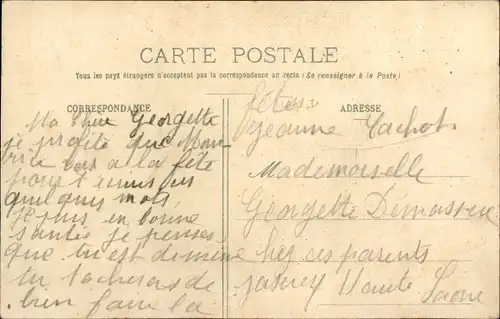 CARTE POSTALE
Tous les pays étrangers n'acceptent pas la correspondance au recto (Se renseigner à la Poste)
CORRESPONDANCE
Ma Chère Georgette
je profite que
a la fête
pour t
quelques mots,
je suis en bonne
santé je penses,
que tu est de même
tu tacheras de
bien faire la
fêtes
Jeanne Cachot
ADRESSE
Mademoiselle
Georgette
chez ces parents
Haute Saone